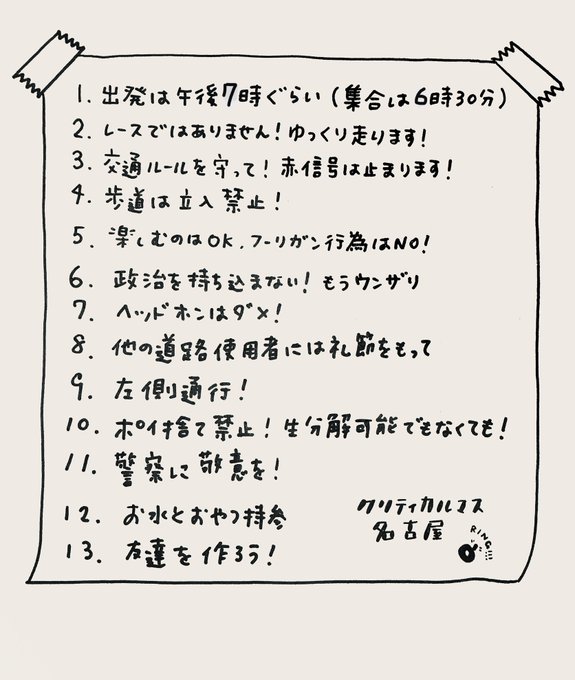 1. 出発は午後7時ぐらい (集合は6時30分)
2. レースではありません! ゆっくり走ります!
3. 交通ルールを守って! 赤信号は止まります!
4. 歩道は立入禁止!
5. 楽しむのはOK. フーリガン行為はNO!
6. 政治を持ち込まない! もうウンザリ
7. ヘッドホンはダメ!
8. 他の道路使用者には礼節をもって
9. 左側通行!
10. ポイ捨て禁止! 生分解可能でもなくても!
11. 警察に敬意を!
12. お水とおやつ持参
13. 友達を作ろう!
クリティカルマス
名古屋
RING!!!